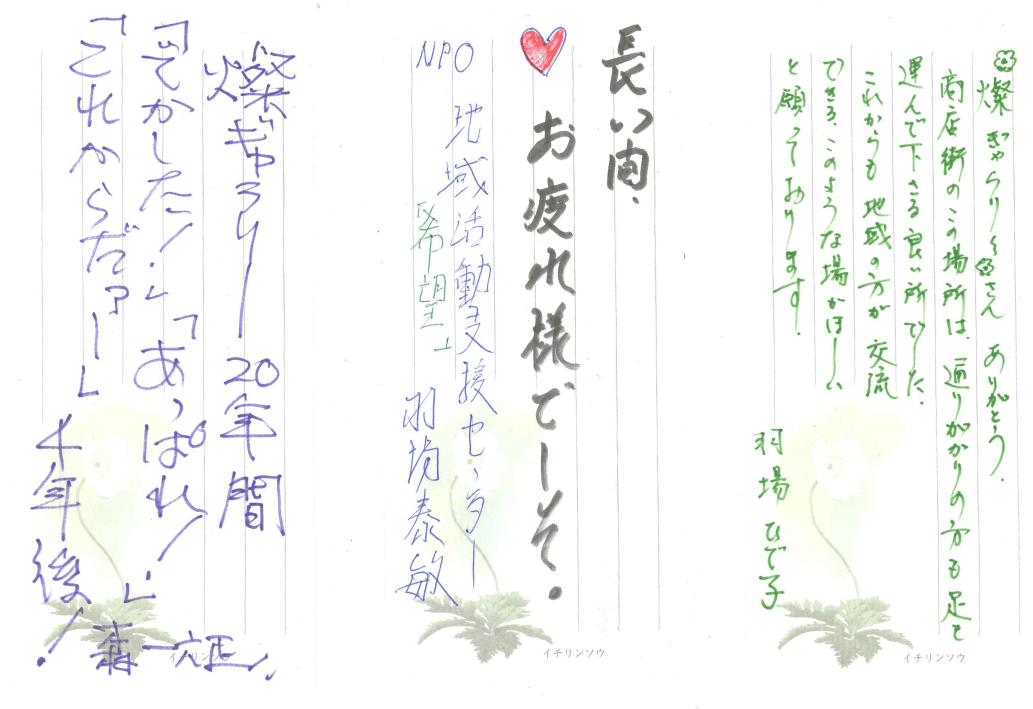 燦ぎゃらりぃさん ありがとう.
商店街のこの場所は、通りがかりの方も足を
運んで下さる良い所でした.
これからも地域の方が交流
できる、このような場がほしい
と願っております.
羽場 ひで子
イチリンソウ
長い間、
お疲れ様でした。
NPO 地域活動支援センター
「希望」
羽場泰敏
イチリンソウ
燦ぎゃらりー 20年間
「でかした!」「あっぱれ!」
「これからだァー」 十年後!
森一
イチリンソウ